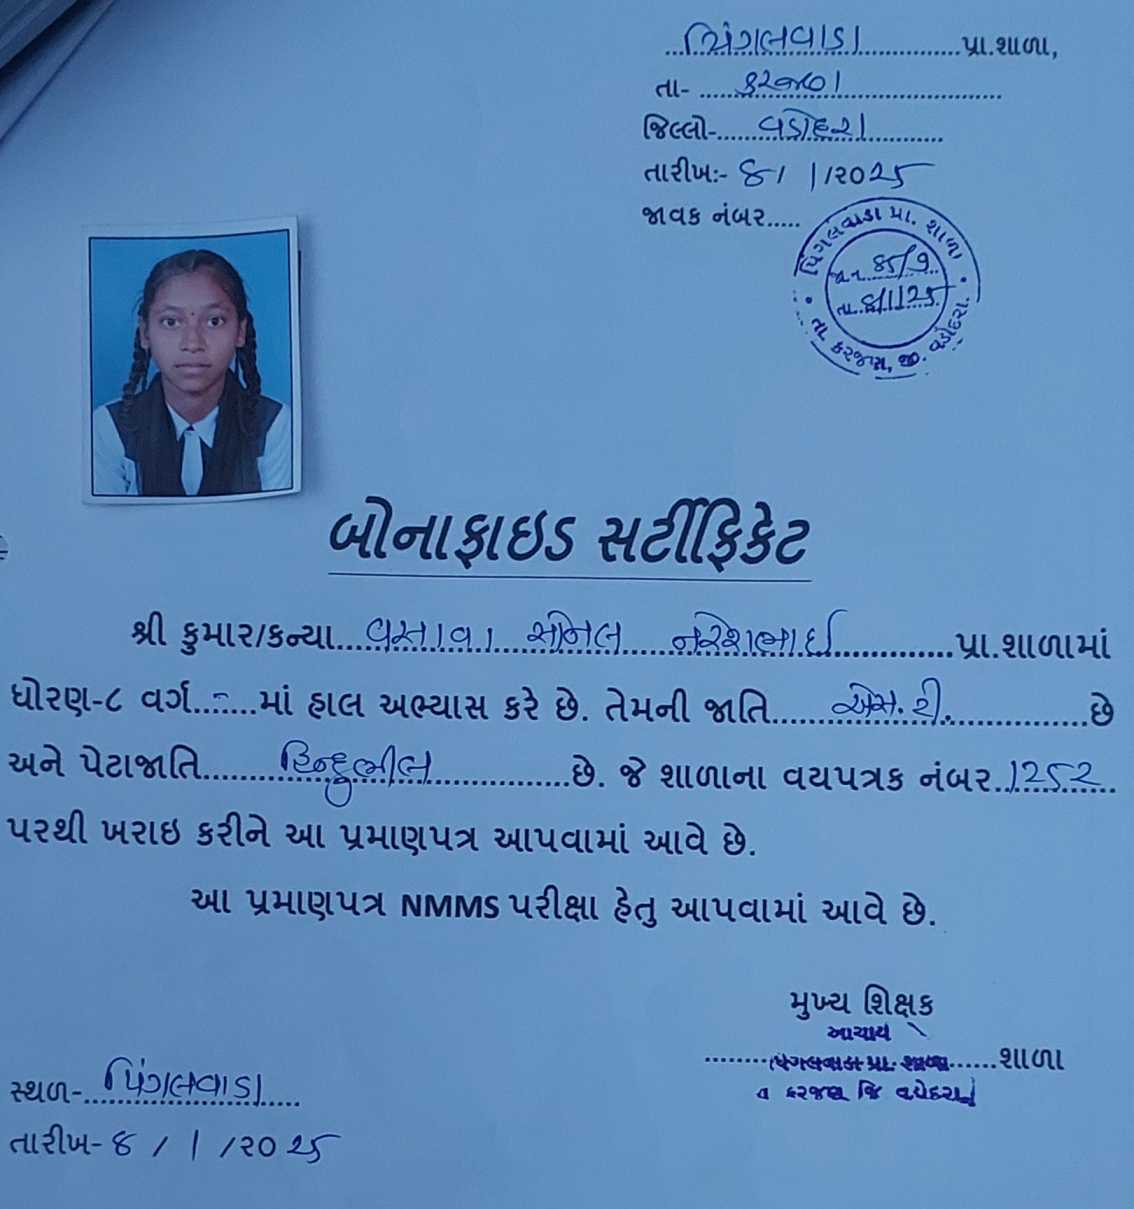 પિંગલવાડા પ્રા.શાળા,
તા- કરજણ
જિલ્લો- વડોદરા
તારીખ:- ૪/ 1/૨૦25
જાવક નંબર.....
પિંગલવાડા પ્રા. શાળા
જા.નં. 85/9
તા. ૪/1/25
તા. કરજણ, જી. વડોદરા.
બોનાફાઇડ સર્ટીફિકેટ
શ્રી કુમાર/કન્યા વસાવા નરેશભાઈ પ્રા.શાળામાં
ધોરણ-૮ વર્ગ.. - ..માં હાલ અભ્યાસ કરે છે. તેમની જાતિ એસ.ટી. છે
અને પેટાજાતિ હિન્દુભીલ છે. જે શાળાના વયપત્રક નંબર 1252
પરથી ખરાઇ કરીને આ પ્રમાણપત્ર આપવામાં આવે છે.
આ પ્રમાણપત્ર NMMS પરીક્ષા હેતુ આપવામાં આવે છે.
મુખ્ય શિક્ષક
આચાર્ય
પિંગલવાડા પ્રા. શાળા શાળા
તા કરજણ જિ વડોદરા
સ્થળ- પિંગલવાડા
તારીખ- ૪ / 1 /૨૦25